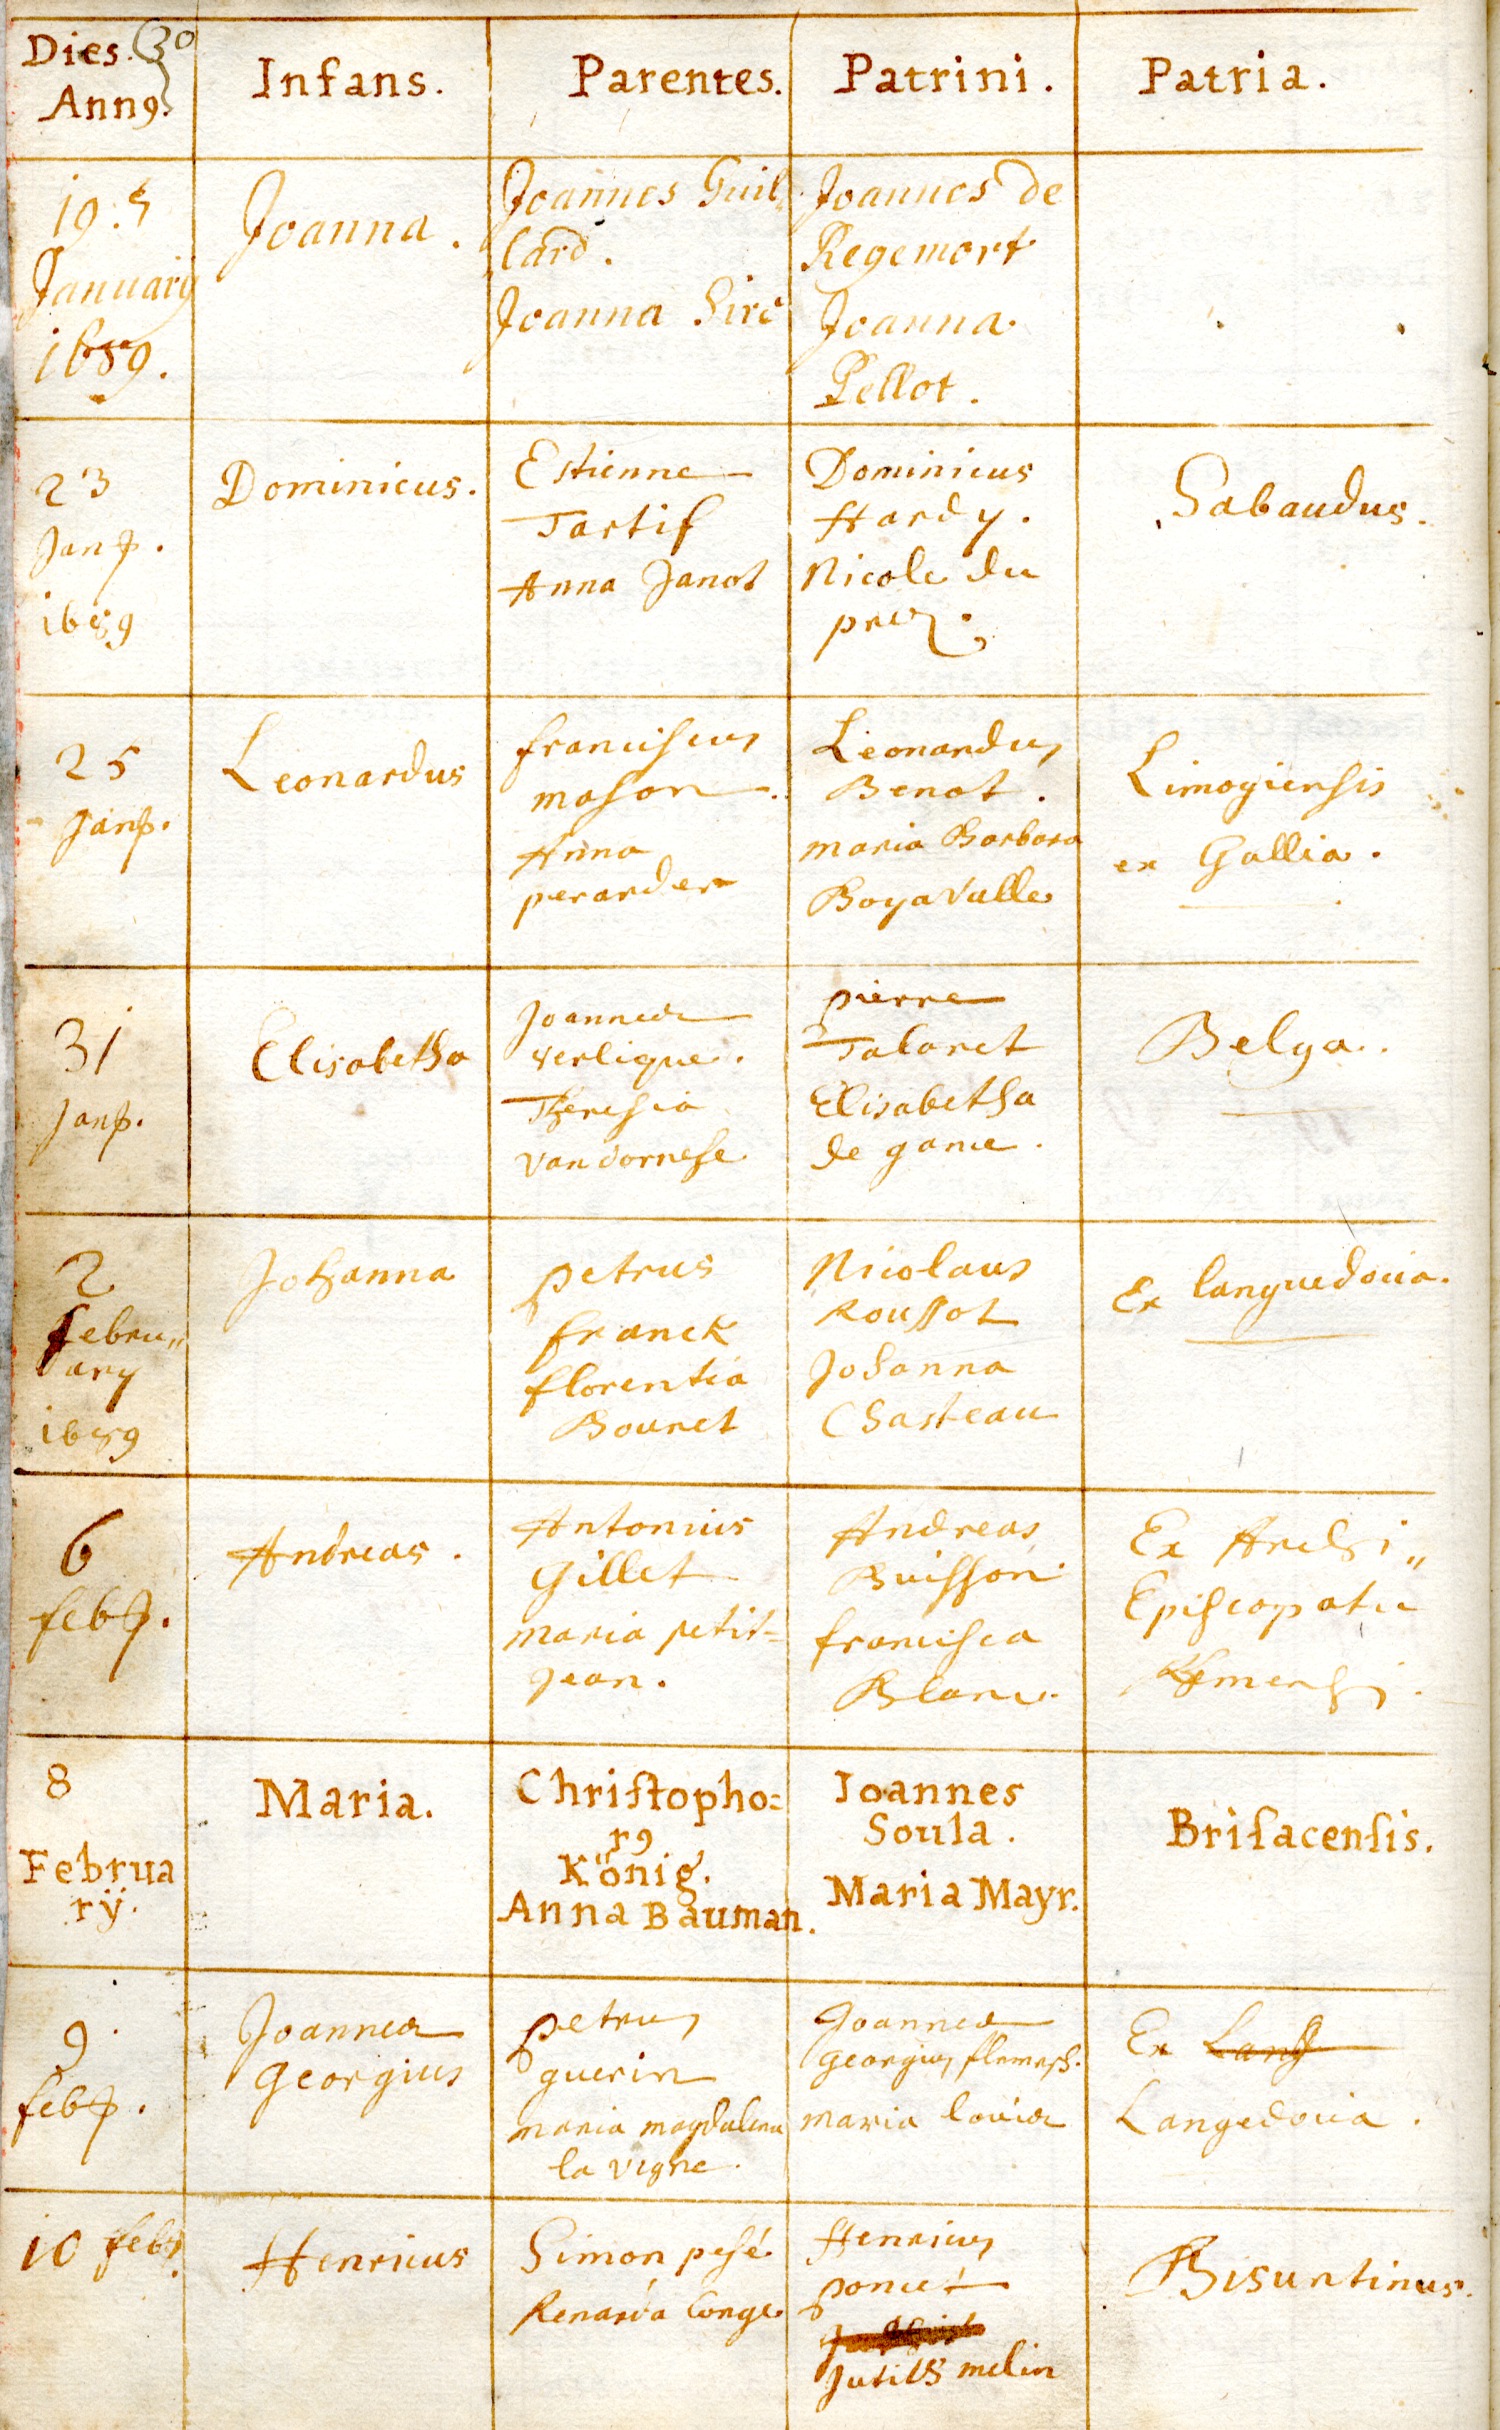 Dies. 30
Anng.
Infans.
Parentes.
Patrini.
Patria.
19.
Januarij
1689.
Joanna.
Joannes Guil=
lard.
Joanna
Joannes de
Regemort
Joanna
Pellot.
23
Janr.
1689
Dominicus.
Estienne
Tartif
Anna Janot
Dominicus
Hardy.
Nicole du
prez.
Sabaudus.
25
Janr.
Leonardus
franciscus
mason.
Anna
perarder
Leonardus
Benot.
maria Barbara
Boyavalle
Limogiensis
ex Gallia.
31
Janr.
Elisabetha
Joannes
verlique.
Theresia
vandornese
pierre
Talaret
Elisabetha
de game.
Belga.
2
febru„
ary
1689
Johanna
petrus
franck
florentia
Bouret
Nicolaus
Roussot
Johanna
Chasteau
Ex languedocia.
6
febr.
Andreas.
Antonius
Gillet
maria petit=
jean.
Andreas
Buisson
francisca
Blanc.
Ex Archi„
Episcopatu
Rhemensi.
8
Februa
rÿ.
Maria.
Christopho=
r9
König.
Anna Bauman.
Joannes
Soula.
Maria Mayr.
Brisacensis.
9
febr.
Joannes
Georgius
petrus
guerin
maria magdalena
la vigne.
Joannes
georgius
maria
Ex Lang
Langedocia.
10 febr.
Henricus
Simon pesé
Renarda Conge.
Henricus
poncet
melin
Bisuntinus.